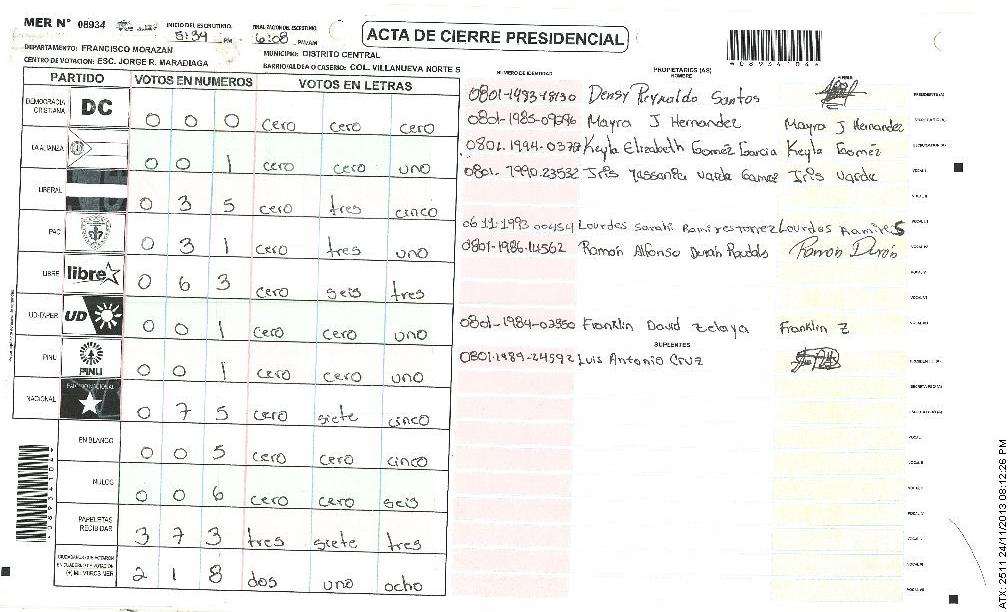 MER N° 08934 INICIO DEL ESCRUTINIO. 5:34 PM FINALIZACION DEL ESCRUTINIO 6:08 PM/AM
ACTA DE CIERRE PRESIDENCIAL
DEPARTAMENTO: FRANCISCO MORAZAN MUNICIPIO: DISTRITO CENTRAL
CENTRO DE VOTACION: ESC. JORGE R. MARADIAGA BARRIO/ALDEA O CASERIO: COL. VILLANUEVA NORTE 5
PARTIDO VOTOS EN NUMEROS VOTOS EN LETRAS
DEMOCRACIA CRISTIANA DC 0 0 0 cero cero cero
LA ALIANZA 0 0 1 cero cero uno
LIBERAL 0 3 5 cero tres cinco
PAC 0 3 1 cero tres uno
LIBRE libre 0 6 3 cero seis tres
UD-FAPER UD 0 0 1 cero cero uno
PINU PINU 0 0 1 cero cero uno
NACIONAL PARTIDO NACIONAL 0 7 5 cero siete cinco
EN BLANCO 0 0 5 cero cero cinco
NULOS 0 0 6 cero cero seis
PAPELETAS RECIBIDAS 3 7 3 tres siete tres
CIUDADANOS QUE VOTARON EN CUADERNO DE VOTACION (+) MIEMBROS MER 2 1 8 dos uno ocho
NUMERO DE IDENTIDAD PROPIETARIOS (AS) NOMBRE FIRMA
0801-1993-18130 Densy Reynaldo Santos PRESIDENTE (A)
0801-1985-09396 Mayra J Hernandez Mayra J Hernandez
0801-1994- Keyla Elizabeth Gomez Garcia Keyla Gomez
0801-1990-23532 Iris Yassania Varde Gamez Iris Varde
0611-1993 00454 Lourdes Sarahi Ramirestorrez Lourdes Ramires
0801-1986-14562 Ramón Alfonso Durón Ramón Durón
0801-1984-03950 Franklin David Zelaya Franklin Z
SUPLENTES
0801-1989-24592 Luis Antonio Cruz
ATX: 2511 24/11/2013 08:12:26 PM